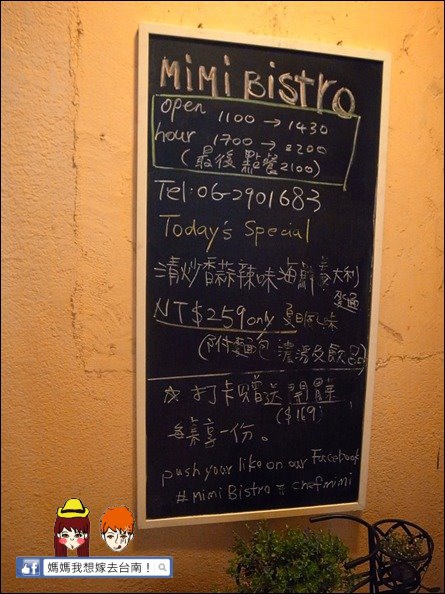 MiMi Bistro
open 1100 → 1430
hour 1700 → 2200
(最後點餐2100)
Tel:06-2901683
Today's Special
清炒香蒜辣味海鮮義大利
麵
NT$259only 夏日風味
(附麵包 濃湯及飲品)
打卡贈送開胃菜
($169)
每桌享一份。
push your like on our Facebook
#mimi Bistro chefmimi
媽媽我想嫁去台南！